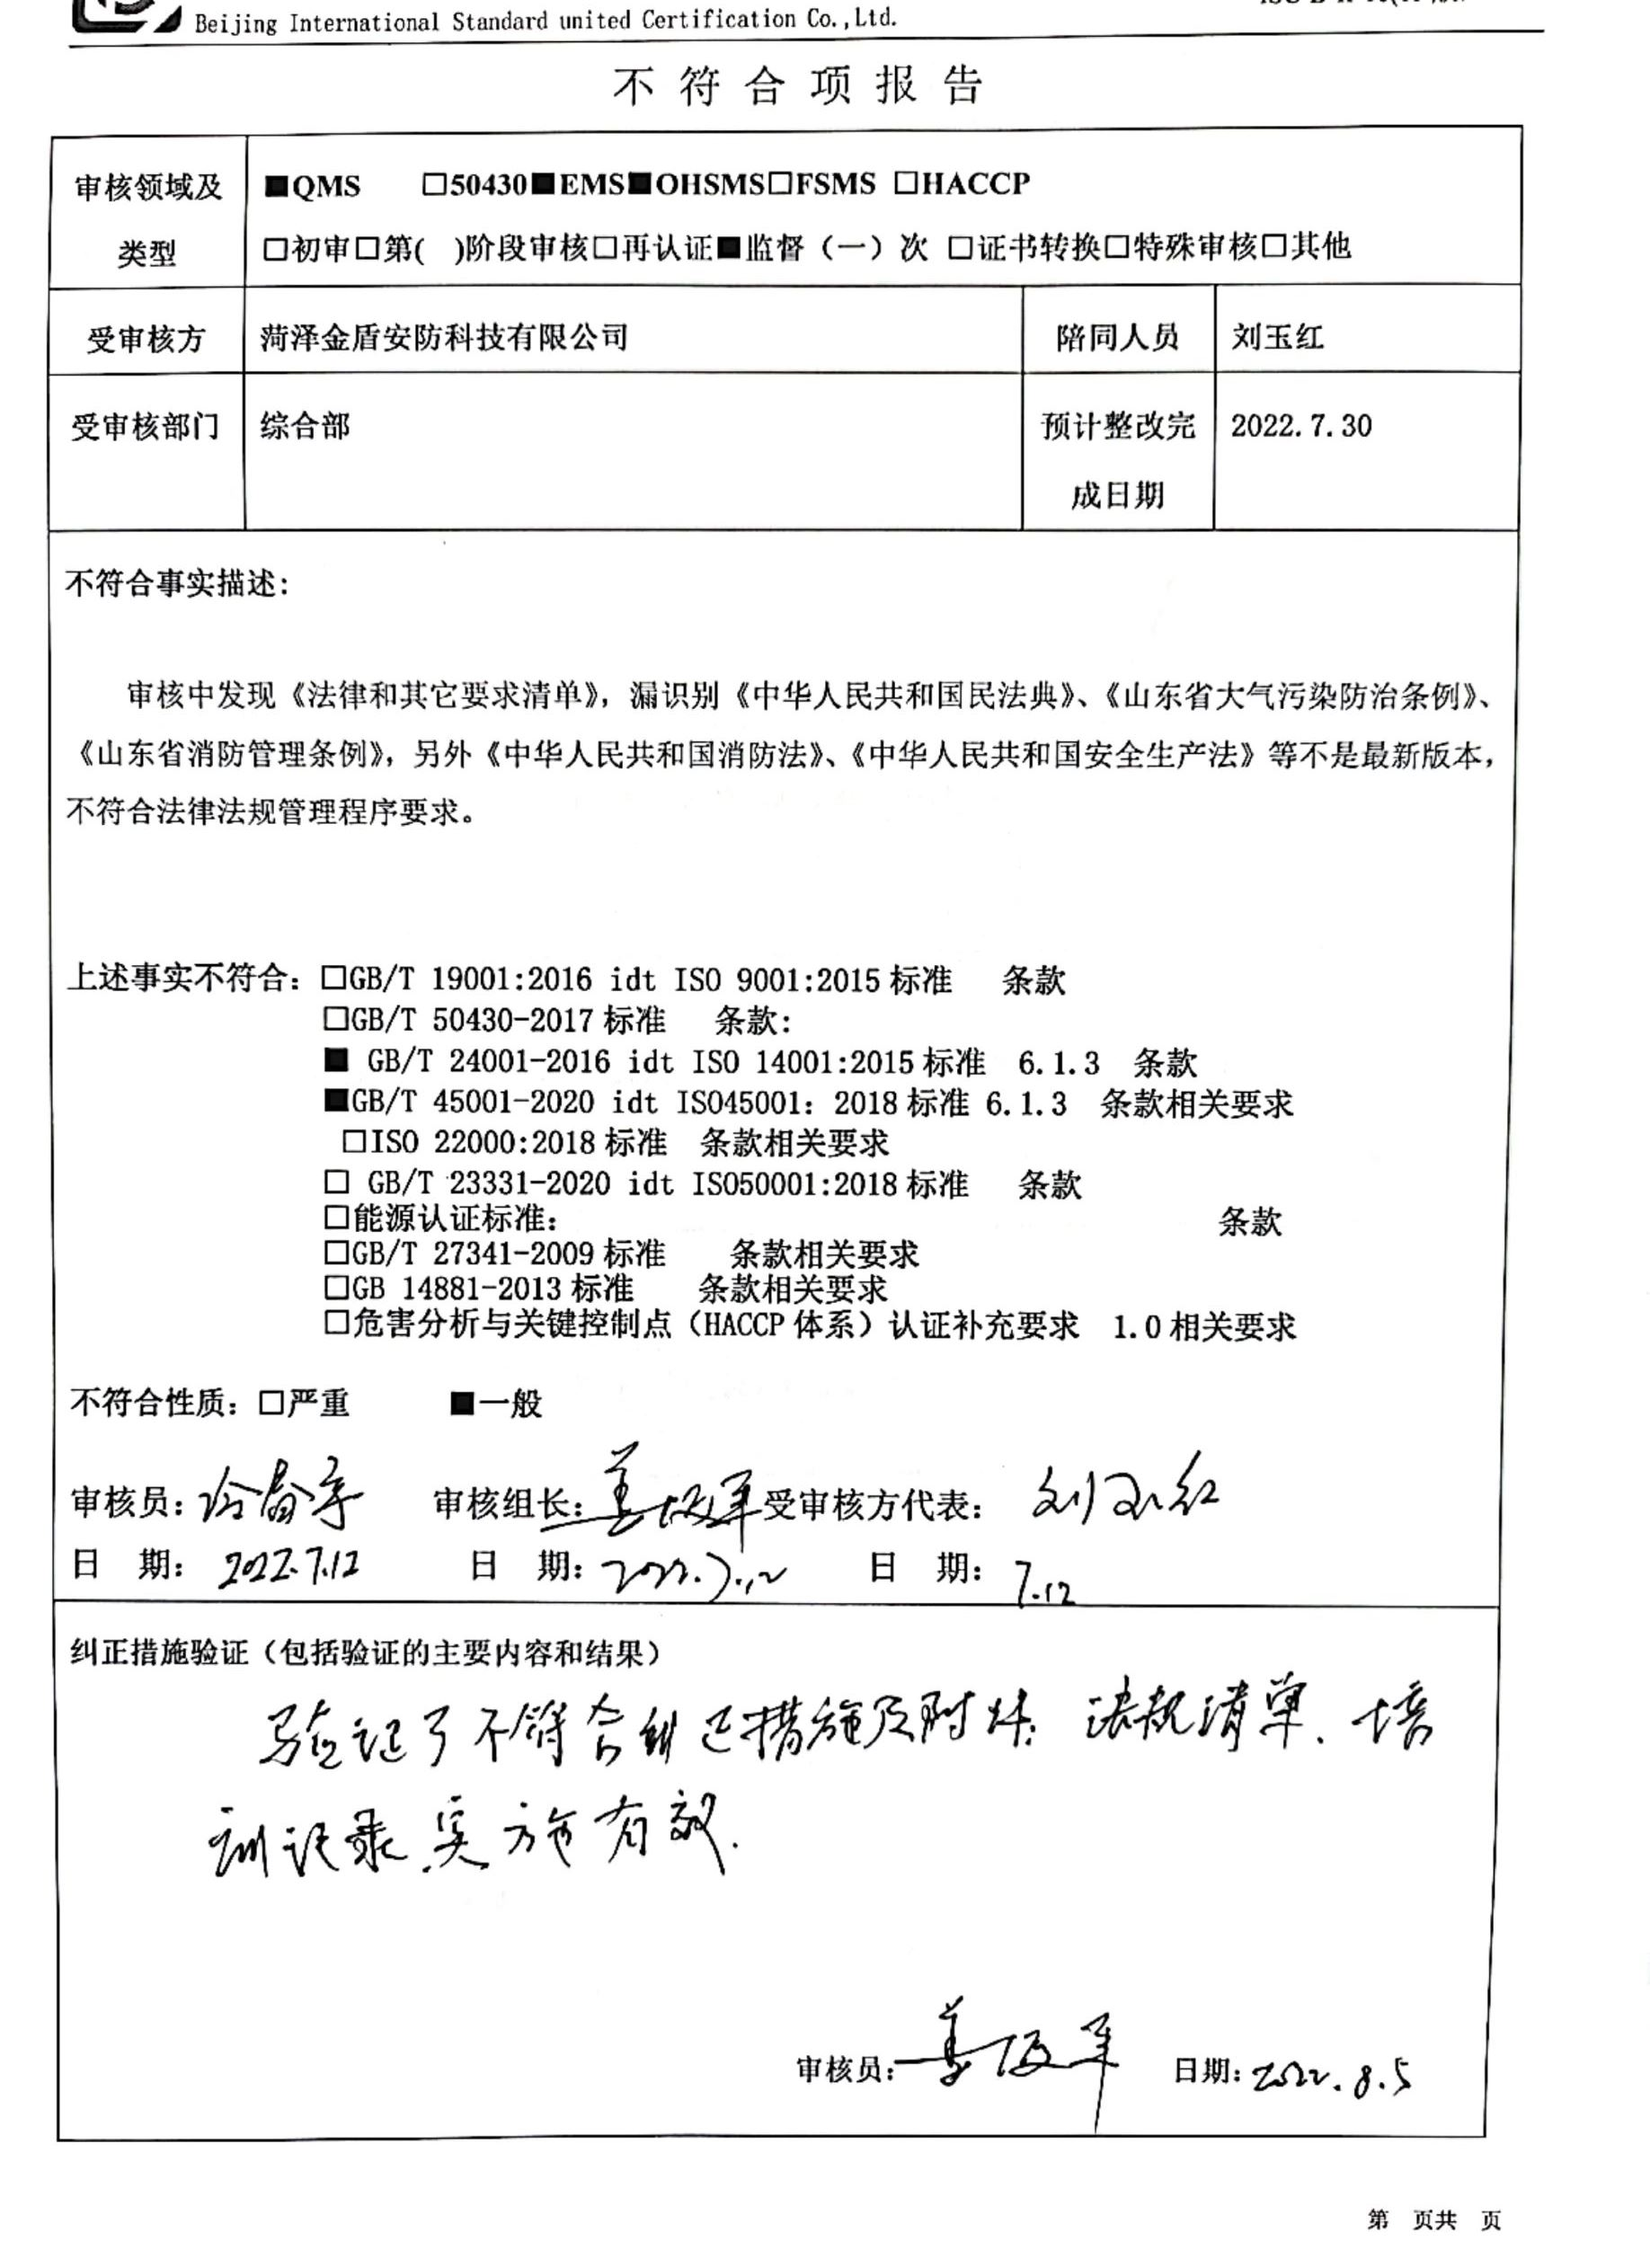 Beijing International Standard united Certification Co.,Ltd.
不符合项报告
审核领域及
类型
■QMS □50430■EMS■OHSMS□FSMS □HACCP
□初审□第( )阶段审核□再认证■监督（一）次 □证书转换□特殊审核□其他
受审核方 菏泽金盾安防科技有限公司 陪同人员 刘玉红
受审核部门 综合部 预计整改完 2022.7.30
成日期
不符合事实描述：
审核中发现《法律和其它要求清单》，漏识别《中华人民共和国民法典》、《山东省大气污染防治条例》、
《山东省消防管理条例》，另外《中华人民共和国消防法》、《中华人民共和国安全生产法》等不是最新版本，
不符合法律法规管理程序要求。
上述事实不符合：□GB/T 19001:2016 idt ISO 9001:2015标准 条款
□GB/T 50430-2017标准 条款：
■ GB/T 24001-2016 idt ISO 14001:2015标准 6.1.3 条款
■GB/T 45001-2020 idt ISO45001：2018标准 6.1.3 条款相关要求
□ISO 22000:2018标准 条款相关要求
□ GB/T 23331-2020 idt ISO50001:2018标准 条款
□能源认证标准： 条款
□GB/T 27341-2009标准 条款相关要求
□GB 14881-2013标准 条款相关要求
□危害分析与关键控制点（HACCP体系）认证补充要求 1.0相关要求
不符合性质：□严重 ■一般
审核员： 审核组长： 受审核方代表： 刘玉红
日 期： 2022.7.12 日 期：2022.7.12 日 期： 7.12
纠正措施验证（包括验证的主要内容和结果）
验证了不符合纠正措施及附件：法规清单、培
训记录，实施有效.
审核员： 日期：2022.8.5
第 页共 页